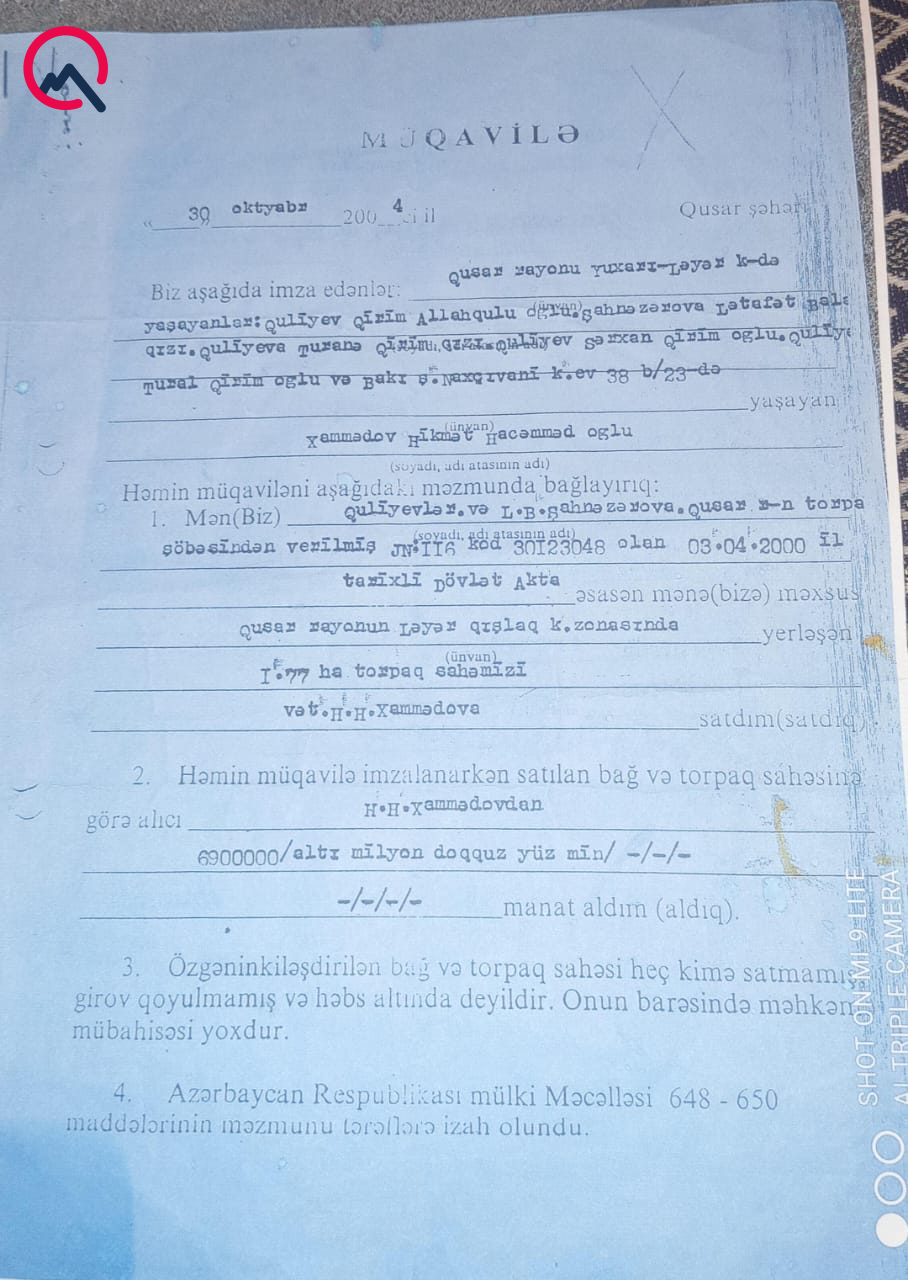 MÜQAVİLƏ
« 30 oktyabr 200 4 ci il Qusar şəhəri
Qusar rayonu Yuxarı-Ləyər k-də
Biz aşağıda imza edənlər:
(ünvan)
yaşayanlar:Quliyev Qirim Allahqulu oğlu.Şahnəzərova Lətafət Balə
qızı.Quliyeva Turanə Qirim qızı.Quliyev Sərxan Qirim oglu.Quliye
Tural Qirim oglu və Bakı ş.Naxçıvani k.ev 38 b/23-də
yaşayan
(ünvan)
Xammədov Hikmət Hacəmməd oglu
(soyadı, adı atasının adı)
Həmin müqaviləni aşağıdakı məzmunda bağlayırıq:
1. Mən(Biz) Quliyevlər.və L.B.Şahnəzərova.Qusar r-n torpa
(soyadı, adı atasının adı)
şöbəsindən verilmiş JN:II6 kod 30I23048 olan 03.04.2000 il
tarixli Dövlət Aktа
əsasən mənə(bizə) məxsus
Qusar rayonun Ləyər qışlaq k.zonasında
yerləşən
(ünvan)
I.77 ha torpaq sahəmizi
vət.H.H.Xammədova
satdım(satdıq).
2. Həmin müqavilə imzalanarkən satılan bağ və torpaq sahəsinə
H.H.Xammədovdan
görə alıcı
6900000/altı milyon doqquz yüz min/ -/-/-
-/-/-/- manat aldım (aldıq).
3. Özgəninkiləşdirilən bağ və torpaq sahəsi heç kimə satmamış
girov qoyulmamış və həbs altında deyildir. Onun barəsində məhkəmə
mübahisəsi yoxdur.
4. Azərbaycan Respublikası mülki Məcəlləsi 648 - 650
maddələrinin məzmunu tərəflərə izah olundu.
SHOT ON MI 9 LITE
AI TRIPLE CAMERA